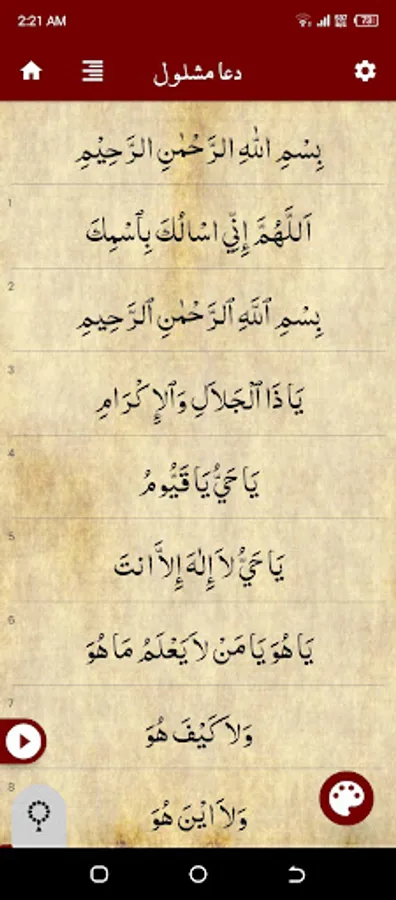 2:21 AM
73
دعا مشلول
بِسْمِ اللهِ الرَّحْمٰنِ الرَّحِيْمِ
1
اَللَّهُمَّ إِنِّي اسْالُكَ بِٱسْمِكَ
2
بِسْمِ ٱللَّهِ ٱلرَّحْمٰنِ ٱلرَّحِيمِ
3
يَا ذَا ٱلْجَلاَلِ وَٱلإِكْرَامِ
4
يَا حَيُّ يَا قَيُّومُ
5
يَا حَيُّ لاَ إِلٰهَ إِلاَّ انتَ
6
يَا هُوَ يَا مَنْ لاَ يَعْلَمُ مَا هُوَ
7
وَلاَ كَيْفَ هُوَ
8
وَلاَ ايْنَ هُوَ